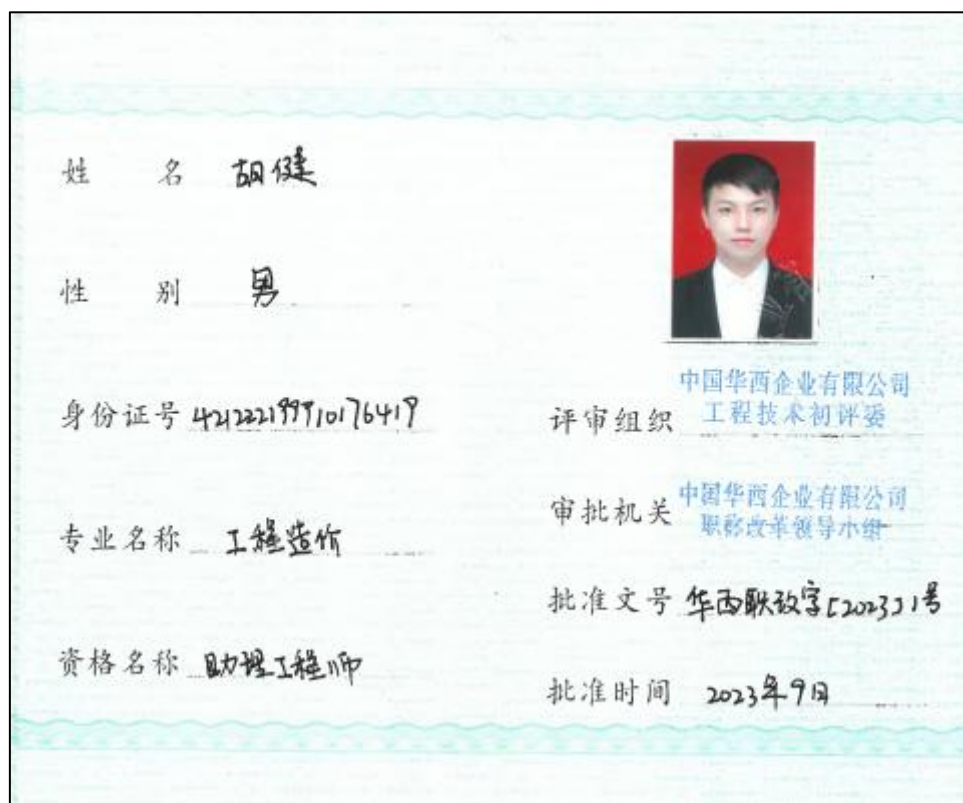 姓 名 胡健
性 别 男
身份证号 421222199910176419
专业名称 工程造价
资格名称 助理工程师
评审组织 中国华西企业有限公司
工程技术初评委
审批机关 中国华西企业有限公司
职称改革领导小组
批准文号 华西职改字[2023]1号
批准时间 2023年9月